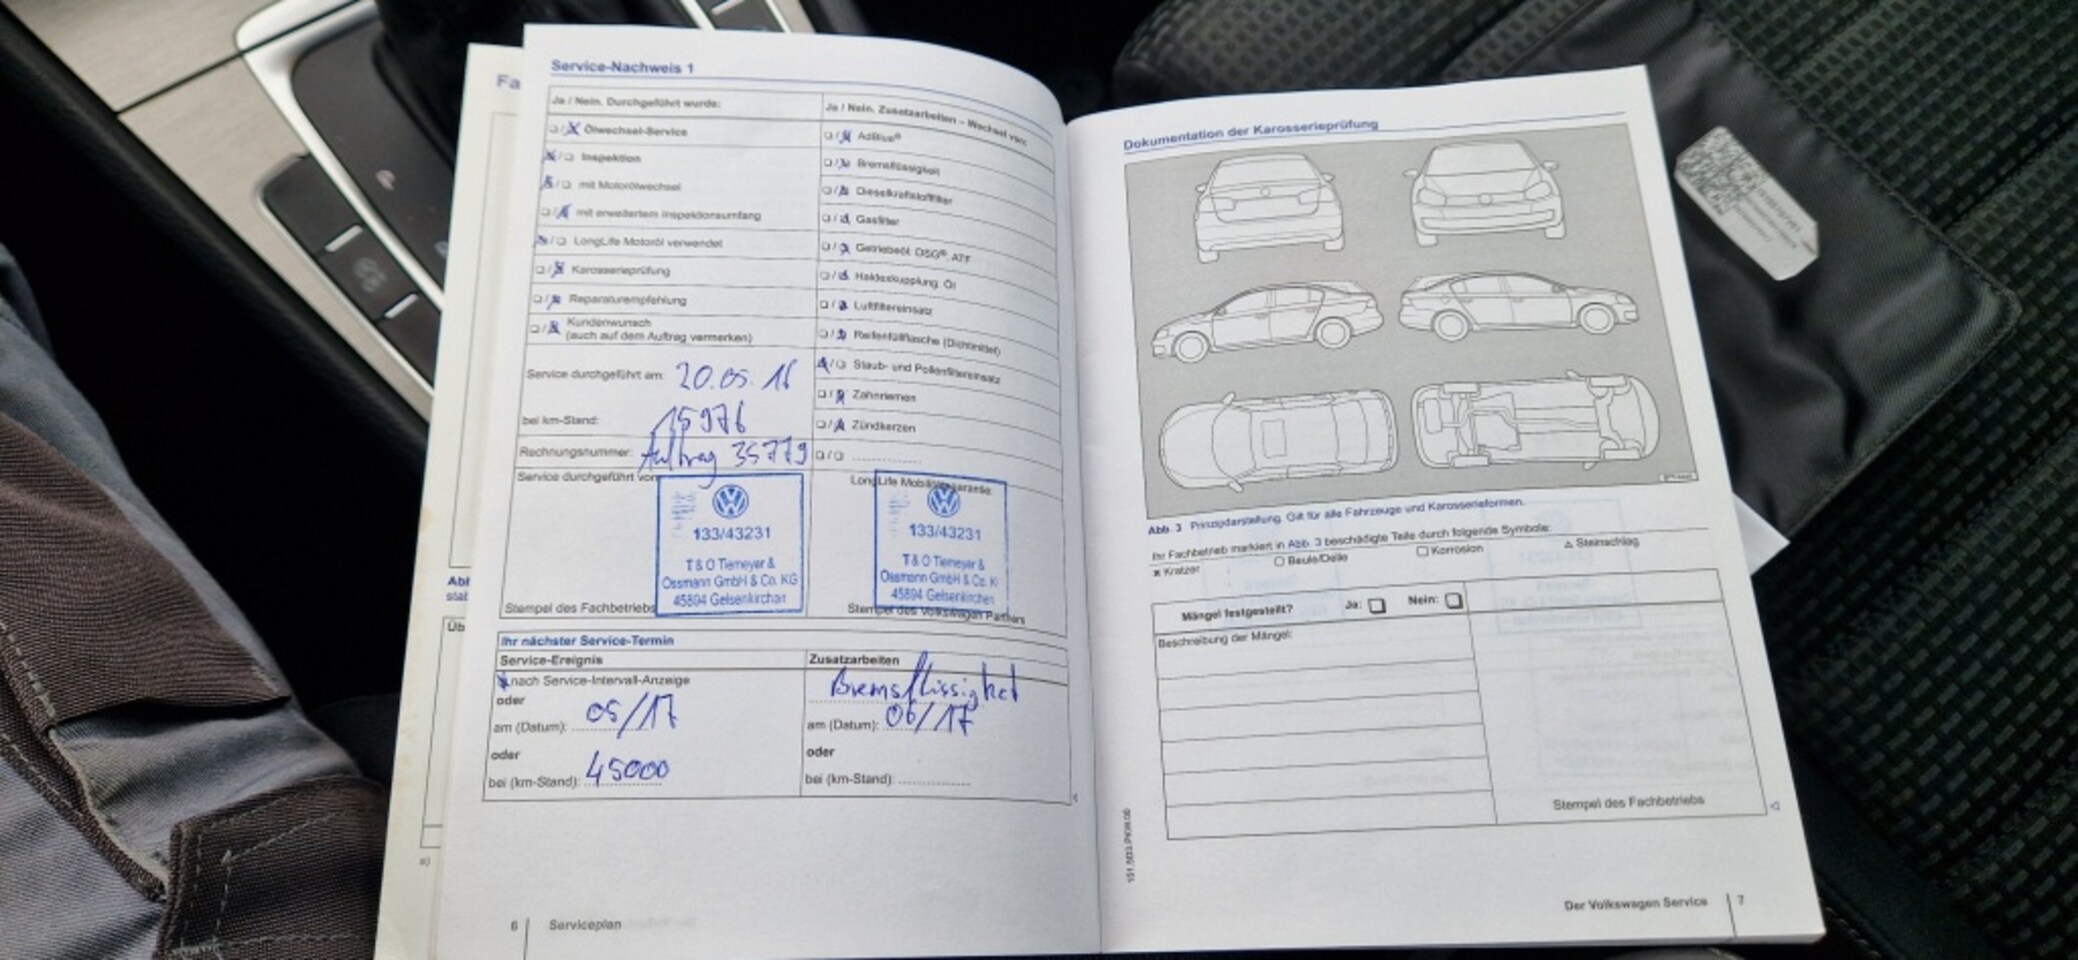 Fa
Service-Nachweis 1
Ja / Nein. Durchgeführt wurde:
❑/X Ölwechsel-Service
X/❑ Inspektion
X/❑ mit Motorölwechsel
❑/X mit erweitertem Inspektionsumfang
X/❑ LongLife Motoröl verwendet
❑/X Karosserieprüfung
❑/X Reparaturempfehlung
❑/X Kundenwunsch
(auch auf dem Auftrag vermerken)
Service durchgeführt am: 20.05.16
bei km-Stand: 15976
Rechnungsnummer: Auftrag 35779
Service durchgeführt von
133/43231
T & O Tiemeyer &
Ossmann GmbH & Co. KG
45894 Gelsenkirchen
Stempel des Fachbetriebs
Ja / Nein. Zusatzarbeiten – Wechsel von:
❑/X AdBlue®
❑/X Bremsflüssigkeit
❑/X Dieselkraftstofffilter
❑/X Gasfilter
❑/X Getriebeöl: DSG®, ATF
❑/X Haldexkupplung: Öl
❑/X Luftfiltereinsatz
❑/X Reifenfüllflasche (Dichtmittel)
X/❑ Staub- und Pollenfiltereinsatz
❑/X Zahnriemen
❑/X Zündkerzen
❑/❑ ...............
LongLife Mobilitätsgarantie
133/43231
T & O Tiemeyer &
Ossmann GmbH & Co. K
45894 Gelsenkirchen
Stempel des Volkswagen Partners
Ihr nächster Service-Termin
Service-Ereignis
X nach Service-Intervall-Anzeige
oder
am (Datum): 05/17
oder
bei (km-Stand): 45000
Zusatzarbeiten
Bremsflüssigkeit
am (Datum): 06/17
oder
bei (km-Stand): ...............
6 Serviceplan
Dokumentation der Karosserieprüfung
Abb. 3 Prinzipdarstellung. Gilt für alle Fahrzeuge und Karosserieformen.
Ihr Fachbetrieb markiert in Abb. 3 beschädigte Teile durch folgende Symbole:
x Kratzer ○ Beule/Delle □ Korrosion △ Steinschlag
Mängel festgestellt? Ja: ❑ Nein: ❑
Beschreibung der Mängel:
Stempel des Fachbetriebs
Der Volkswagen Service 7